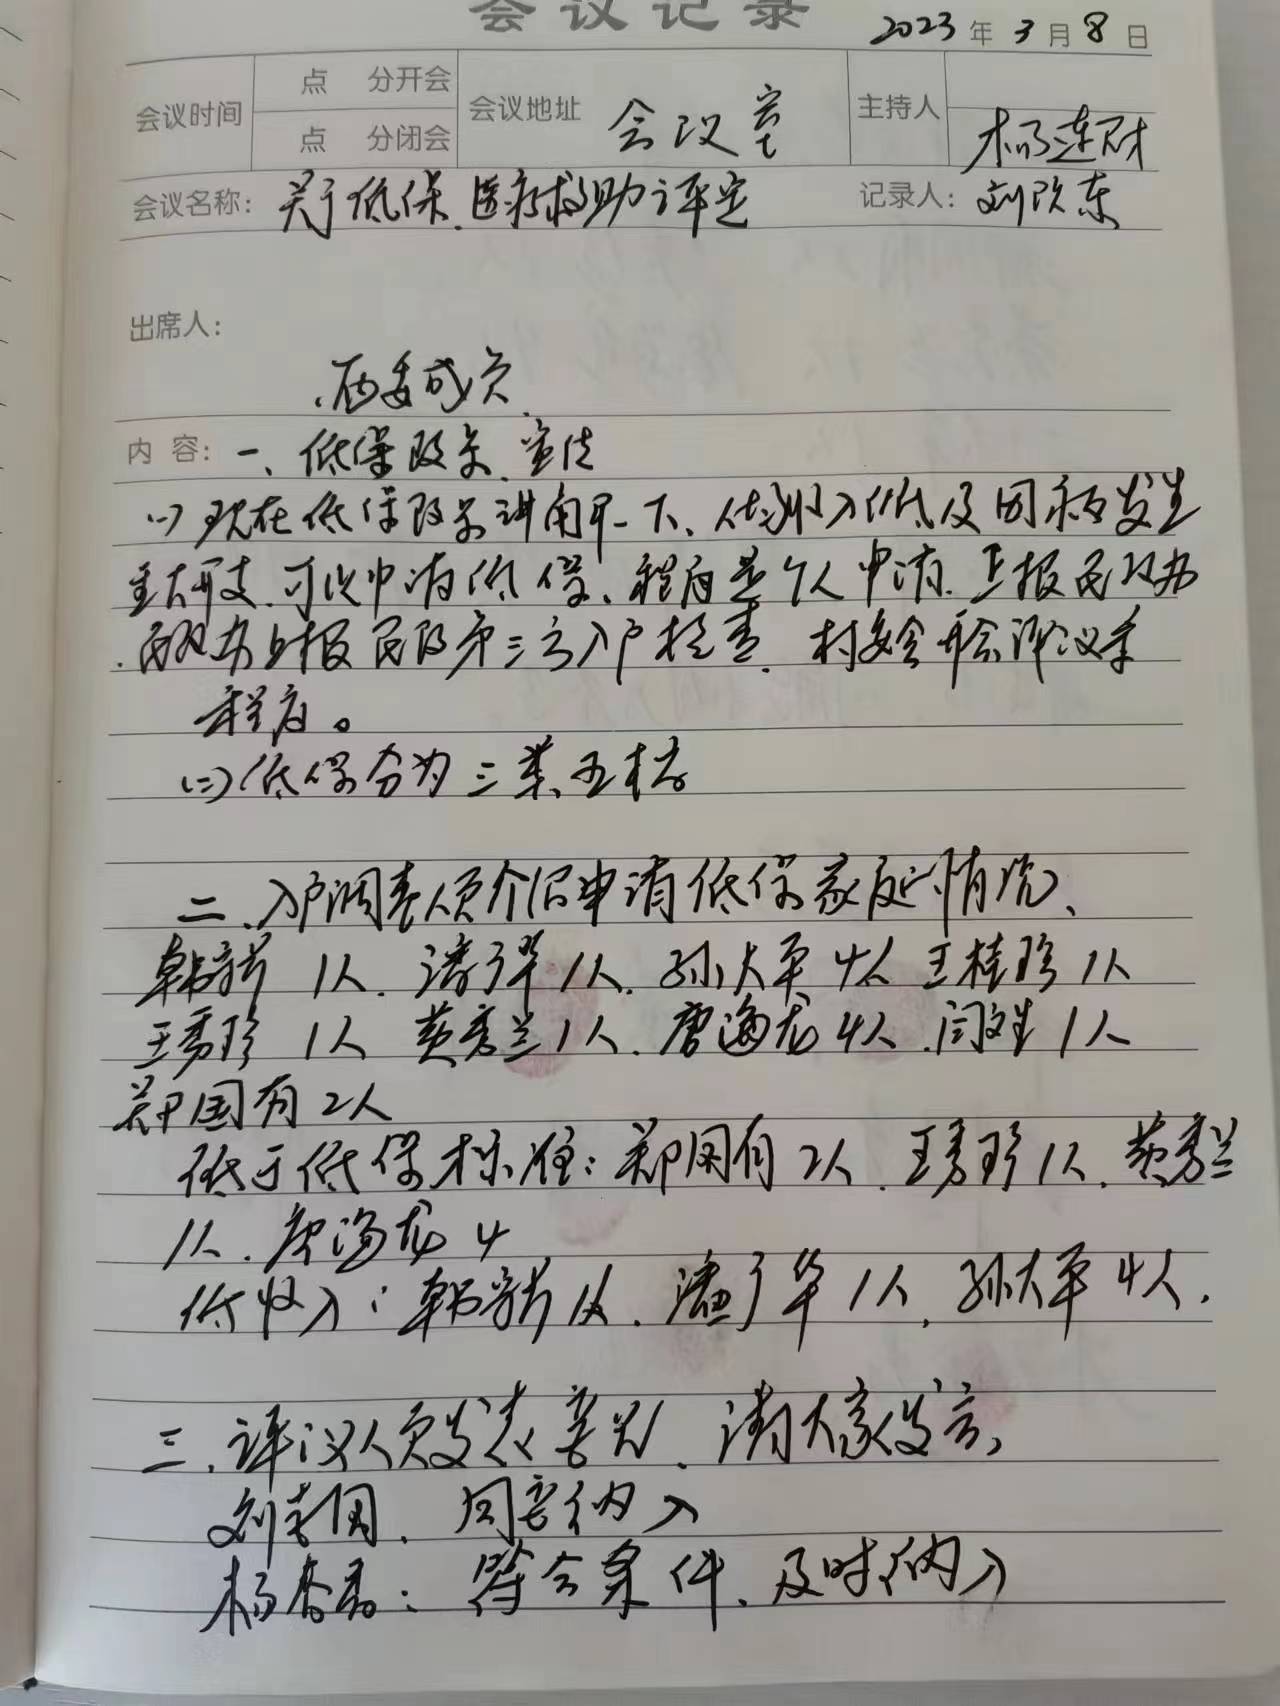 会议记录
2023年3月8日
会议时间 点 分开会 会议地址 会议室 主持人 杨连财
点 分闭会
会议名称: 关于低保、医疗救助评定 记录人: 刘改东
出席人:
两委成员
内容: 一、低保政策宣传
(一)现在低保政策讲解一下、人均收入低及因病发生
重大开支、可以申请低保、程序是个人申请、上报民政办
民政办上报民政第三方入户检查、村委会开会评议等
程序。
(二)低保分为三类五档
二、入户调查人员介绍申请低保家庭的情况、
韩 1人、潘子华1人、孙大平4人 王桂珍1人
王秀珍 1人 黄秀兰1人、唐海龙4人、闫文生1人
郑国有2人
低于低保标准: 郑国有2人、王秀珍1人、黄秀兰
1人、唐海龙4
低收入: 韩 1人、潘子华1人、孙大平4人、
三、评议人员发表意见、请大家发言、
刘 国、同意纳入
杨香香: 符合条件、及时纳入